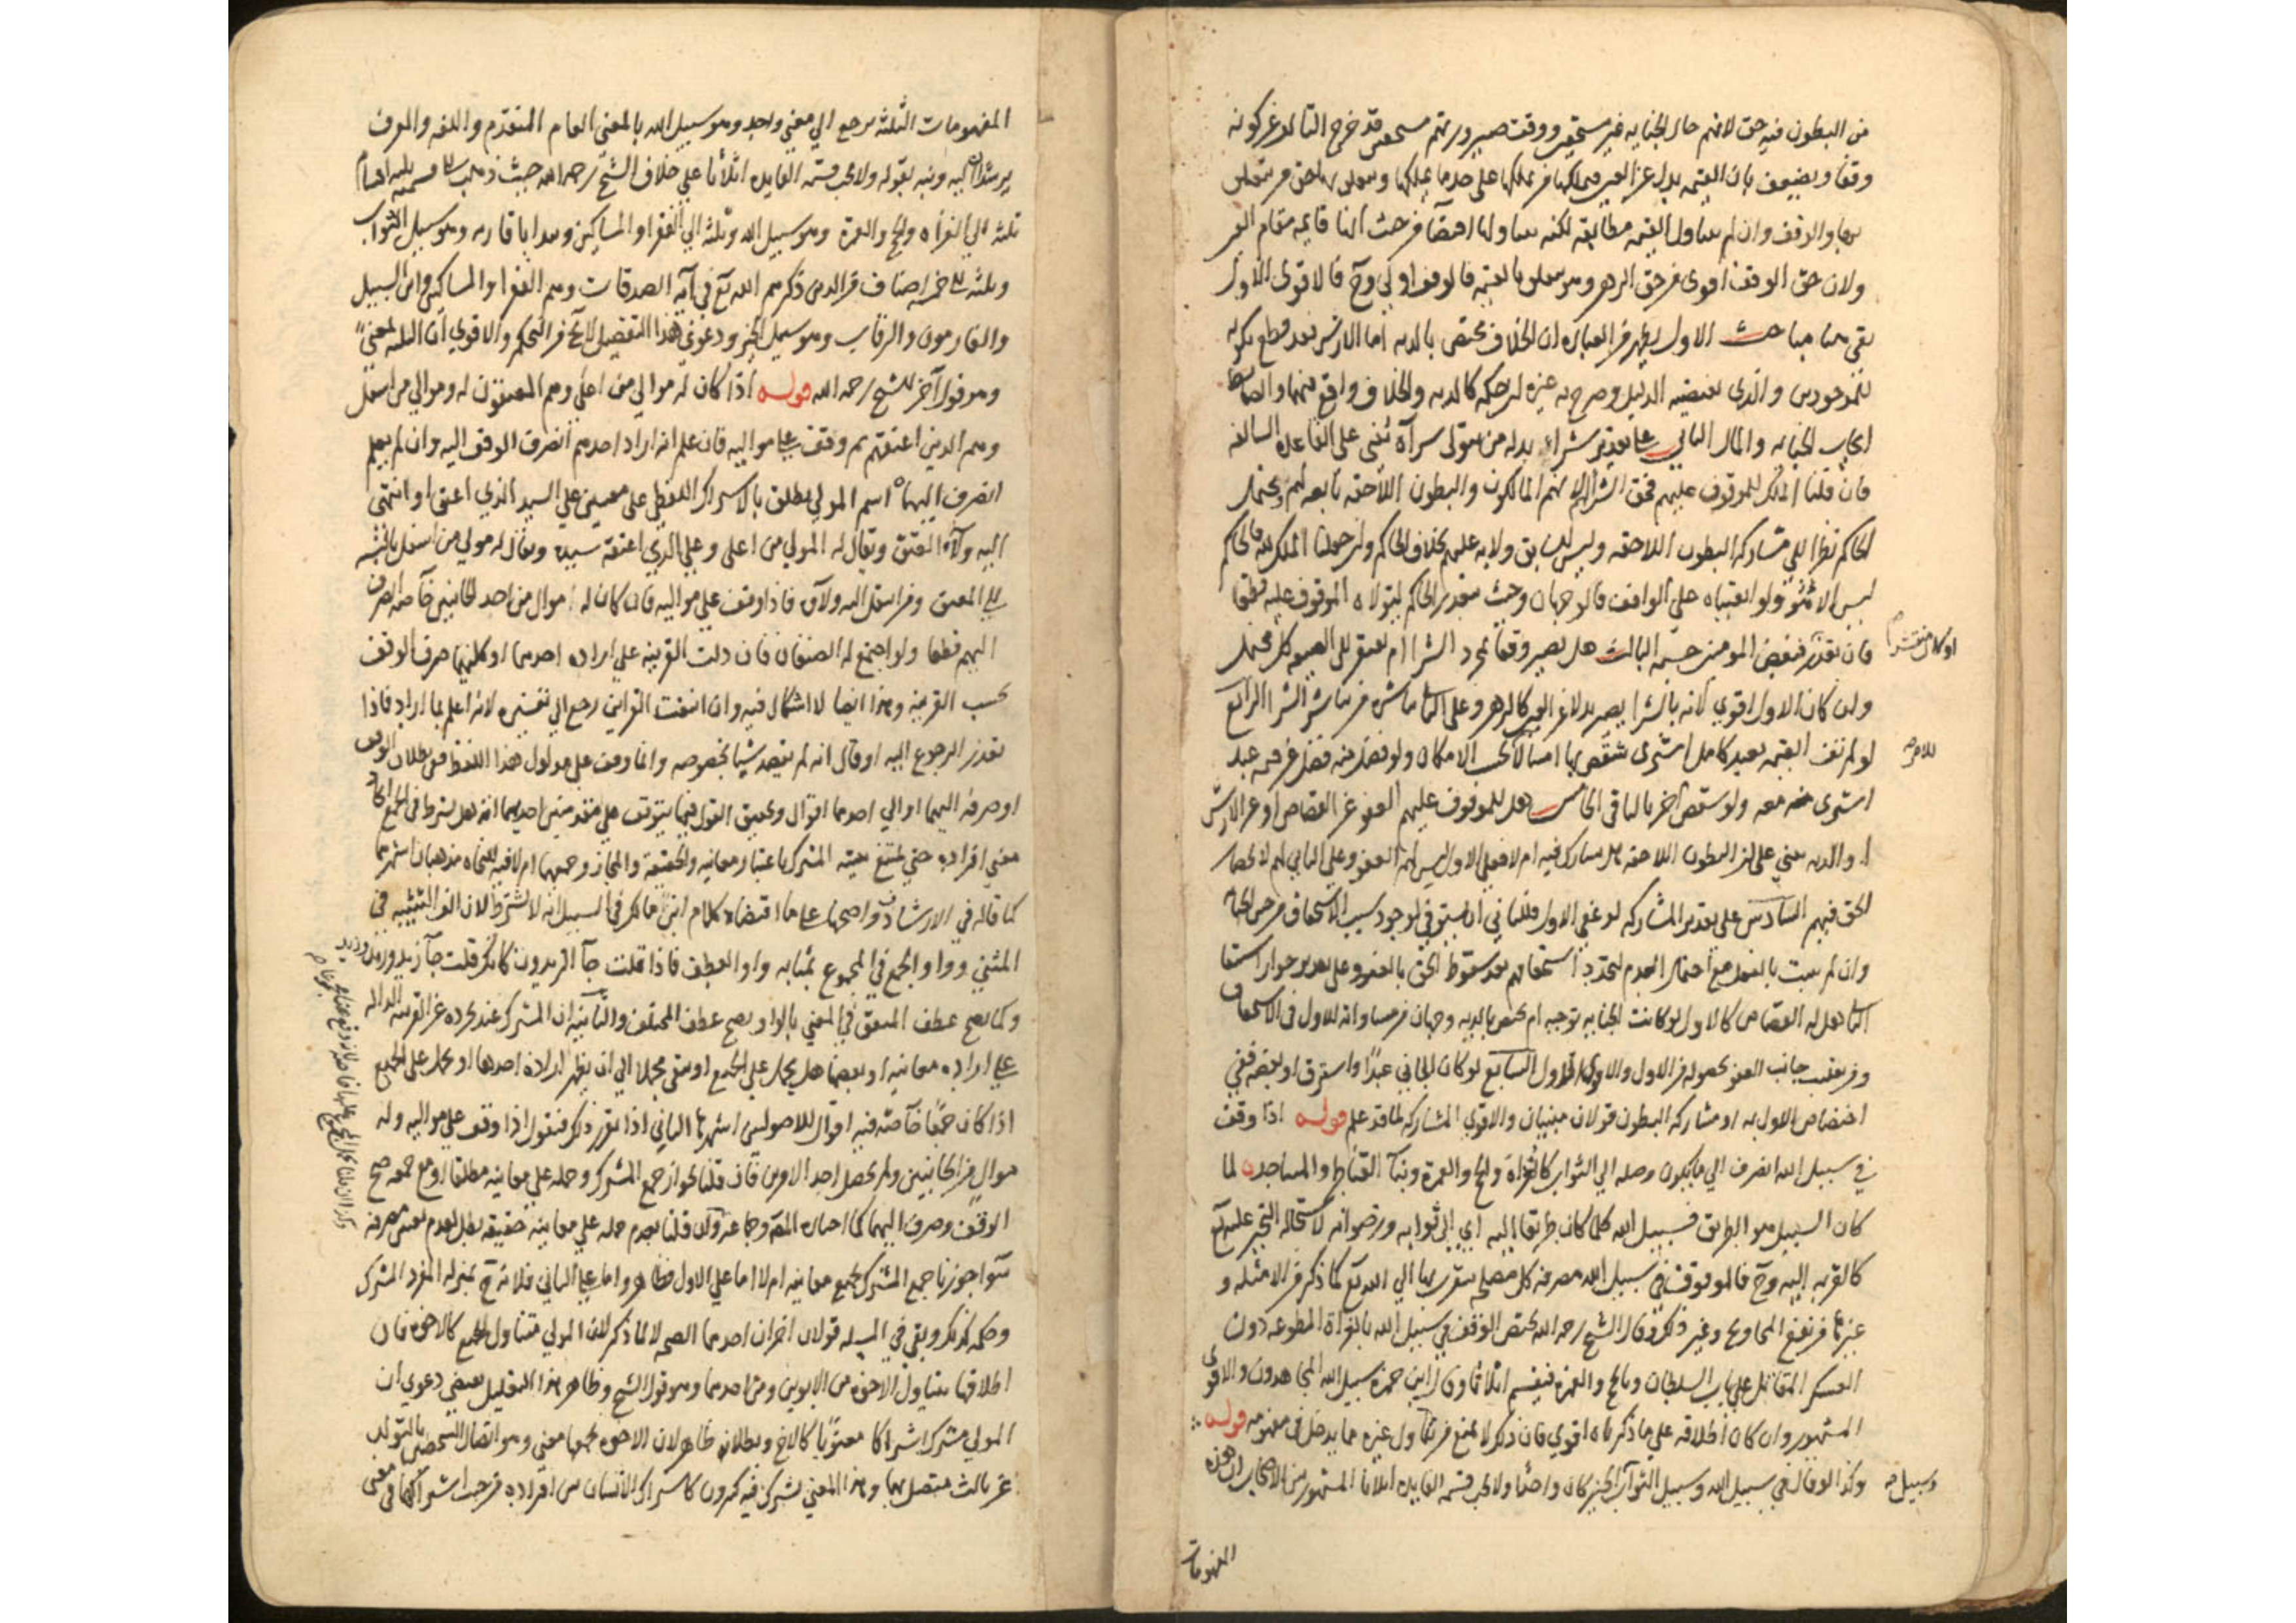 من البطون فيه حق لانهم حال الجناية غير مستحقين ووقت صيرورتهم مستحقين قد خرج التالف عن كونه
وقفا ويضعف بان القيمة بدل عن العين فيملكها من يملكها على حد ما يملكها ويتعلق بها حق من يتعلق
بها والوقف وان لم يتناول القيمة مطابقة لكنه يتناولها اقتضاء من حيث انها قايمة مقام العين
ولان حق الوقف اقوى من حق الرهن وهو يتعلق بالقيمة فالوقف اولى وح فالاقوى الاول
بقي هنا مباحث الاول يظهر من العبارة ان الخلاف مختص بالدية اما الارش فقد قطع بكونه
للموجودين والذي يقتضيه الدليل وصرح به غيره ان حكمه كالدية والخلاف واقع فيهما
الجناية والمال الثاني على تقدير شراء بدله من يتولى شراه يبنى على القاعدة السالفة
فان قلنا الملك للموقوف عليهم فحق الشرا لهم لانهم المالكون والبطون اللاحقة تابعة لهم ويحتمل
الحاكم نظرا الى مشاركة البطون اللاحقة وليس للسابق ولاية عليهم بخلاف الحاكم وان جعلنا الملك لله فالحاكم
ليس الا ولو ابقيناه على الواقف فالوجهان وحيث يتعذر الحاكم يتولاه الموقوف عليه قطعا
فان تعذر فبعض المومنين حسبة الثالث هل يصير وقفا بمجرد الشرا ام يفتقر الى الصيغة كل محتمل
وان كان الاول اقوى لانه بالشرا يصير بدلا عن العين كالرهن وعلى الثاني يباشره من يباشر الشرا الرابع
لو لم تف القيمة بعبد كامل اشترى شقص بها امتثالا بحسب الامكان ولو فضل منه فضل عن قيمة عبد
اشترى معه ولو شقص آخر بالباقي الخامس هل للموقوف عليهم العفو عن القصاص او عن الارش
او الدية يبنى على ان البطون اللاحقة هل تشارك فيه ام لا فعلى الاول ليس لهم العفو وعلى الثاني لهم لانحصار
الحق فيهم السادس على تقدير المشاركة لو عفى الاول فللثاني ان يستوفي لوجود سبب الاستحقاق من حين الجناية
وان لم يثبت بالفعل مع احتمال العدم لتجدد استحقاقهم بعد سقوط الحق بالعفو وعلى تقدير جواز استيفا
الثاني هل له القصاص كالاول لو كانت الجناية توجبه ام يختص بالدية وجهان من مساواته للاول في الاستحقاق
ومن تغليب جانب العفو بحصوله من الاول والاقوى الاول السابع لو كان الجاني عبدا واسترق او بعضه ففي
اختصاص الاول به او مشاركة البطون قولان مبنيان والاقوى المشاركة لما قد علم قوله اذا وقف
في سبيل الله انصرف الى ما يكون وصلة الى الثواب كالغزاة والحج والعمرة وبنآ القناطر والمساجد لما
كان السبيل هو الطريق فسبيل الله كلما كان طريقا اليه اي الى ثوابه ورضوانه لاستحالة التحيز عليه تع
كالقربة اليه وح فالموقوف في سبيل الله مصرفه كل مصلحة يتقرب بها الى الله تع كما ذكر من الامثلة و
غيرها من نفع المحاويج وغير ذلك وقال الشيخ رحمه الله يختص الوقف في سبيل الله بالغزاة المطوعة دون
العسكر المقاتل على باب السلطان وبالحج والعمرة فيقسم اثلاثا وقال ابن حمزة سبيل الله المجاهدون والاقوى
المشهور وان كان اطلاقه على ما ذكراه اقوى فان ذلك لا يمنع من تناول غيره مما يدخل في مفهومه قوله
وكذا لو قال في سبيل الله وسبيل الثواب الخير كان واحدا ولا يجب قسمة الفايدة اثلاثا المشهور بين الاصحاب ان هذه
وسبيل
المفهومات
المفهومات الثلثة يرجع الى معنى واحد وهو سبيل الله بالمعنى العام المتقدم واللغة والعرف
يرشدان اليه ونبه بقوله ولا يجب قسمة الفايدة اثلاثا على خلاف الشيخ رحمه الله حيث ذهب الى قسمته ثلثة اقسام
ثلثه الى الغزاة والحج والعمرة وهو سبيل الله وثلثه الى الفقرا والمساكين ويبدا باقاربه وهو سبيل الثواب
وثلثه الى خمسة اصناف من الذين ذكرهم الله تع في آية الصدقات وهم الفقرا والمساكين وابن السبيل
والغارمون والرقاب وهو سبيل الخير ودعوى هذا التفصيل لا يخ من التحكم والاقوى ان الثلثة بمعنى
وهو قول آخر للشيخ رحمه الله قوله اذا كان له موالي من اعلى وهم المعتقون له وموالي من اسفل
وهم الذين اعتقهم ثم وقف على مواليه فان علم انه اراد احدهم انصرف الوقف اليه وان لم يعلم
انصرف اليهما اسم المولى يطلق بالاشتراك اللفظي على معنيين على السيد الذي اعتق او انتهى
اليه ولآء العتق ويقال له المولى من اعلى وعلى الذي اعتقه سيده ويقال له مولى من اسفل بالنسبة
الى المعتق ومن انتقل اليه ولآؤه فاذا وقف على مواليه فان كان له موال من احد الجانبين خاصة انصرف
اليهم قطعا ولو اجتمع له الصنفان فان دلت القرينة على ارادة احدهما او كليهما صرف الوقف
بحسب القرينة وهذا ايضا لا اشكال فيه وان انتفت القراين رجع الى تفسيره لانه اعلم بما اراد فاذا
تعذر الرجوع اليه او قال انه لم يقصد شيا بخصوصه وانما وقف على مدلول هذا اللفظ ففي بطلان الوقف
او صرفه اليهما او الى احدهما اقوال وتحقيق القول فيها يتوقف على مقدمتين احديهما انه هل يشترط في الجمع اتحاد
معنى افراده حتى يمتنع تثنيته المشترك باعتبار معانيه والحقيقة والمجاز وجمعهما ام لا فيه للنحاة مذهبان اشهرهما
كما قاله في الارشاف واصحهما على ما اقتضاه كلام ابن مالك في التسهيل انه لا يشترط لان الف التثنية في
المثنى وواو الجمع في المجموع بمثابة واو العطف فاذا قلت جآ الزيدون كانك قلت جآ زيد وزيد وزيد
وكما يصح عطف المتفق في المعنى بالواو يصح عطف المختلف والثانية ان المشترك عند تجرده عن القرينة الدالة
على ارادة معانيه او بعضها هل يحمل على الجميع او يبقى مجملا الى ان يظهر ارادة احدها او يحمل على الجميع
اذا كان جمعا خاصة فيه اقوال للاصوليين اشهرها الثاني اذا تقرر ذلك فنقول اذا وقف على مواليه وله
موال من الجانبين ولم يحصل احد الامرين فان قلنا بجواز جمع المشترك وحمله على معانيه مطلقا او مع جمعه صح
الوقف وصرف اليهما كما اختاره المصنف وجماعة وان قلنا بعدم حمله على معانيه حقيقة بطل لعدم تعيين مصرفه
سوآ جوزنا جمع المشترك بجميع معانيه ام لا اما على الاول فظاهر واما على الثاني فلانه ح بمنزلة المفرد المشترك
وحكمه كذلك وبقي في المسئلة قولان اخران احدهما الصحة لا لما ذكر لان المولى متناول للجميع كالاخوة فان
اطلاقها يتناول الاخوة من الابوين ومن احدهما وهو قول الشيخ وظاهر هذا التعليل يقتضي دعوى ان
المولى مشترك اشتراكا معنويا كالاخ وبطلانه ظاهر لان الاخوة يجمعها معنى وهو اتصال الشخص بالتولد
عن ثالث متصل بها وهذا المعنى يشترك فيه كثيرون كاشتراك الانسان بين افراده من حيث اشتراكها في معنى